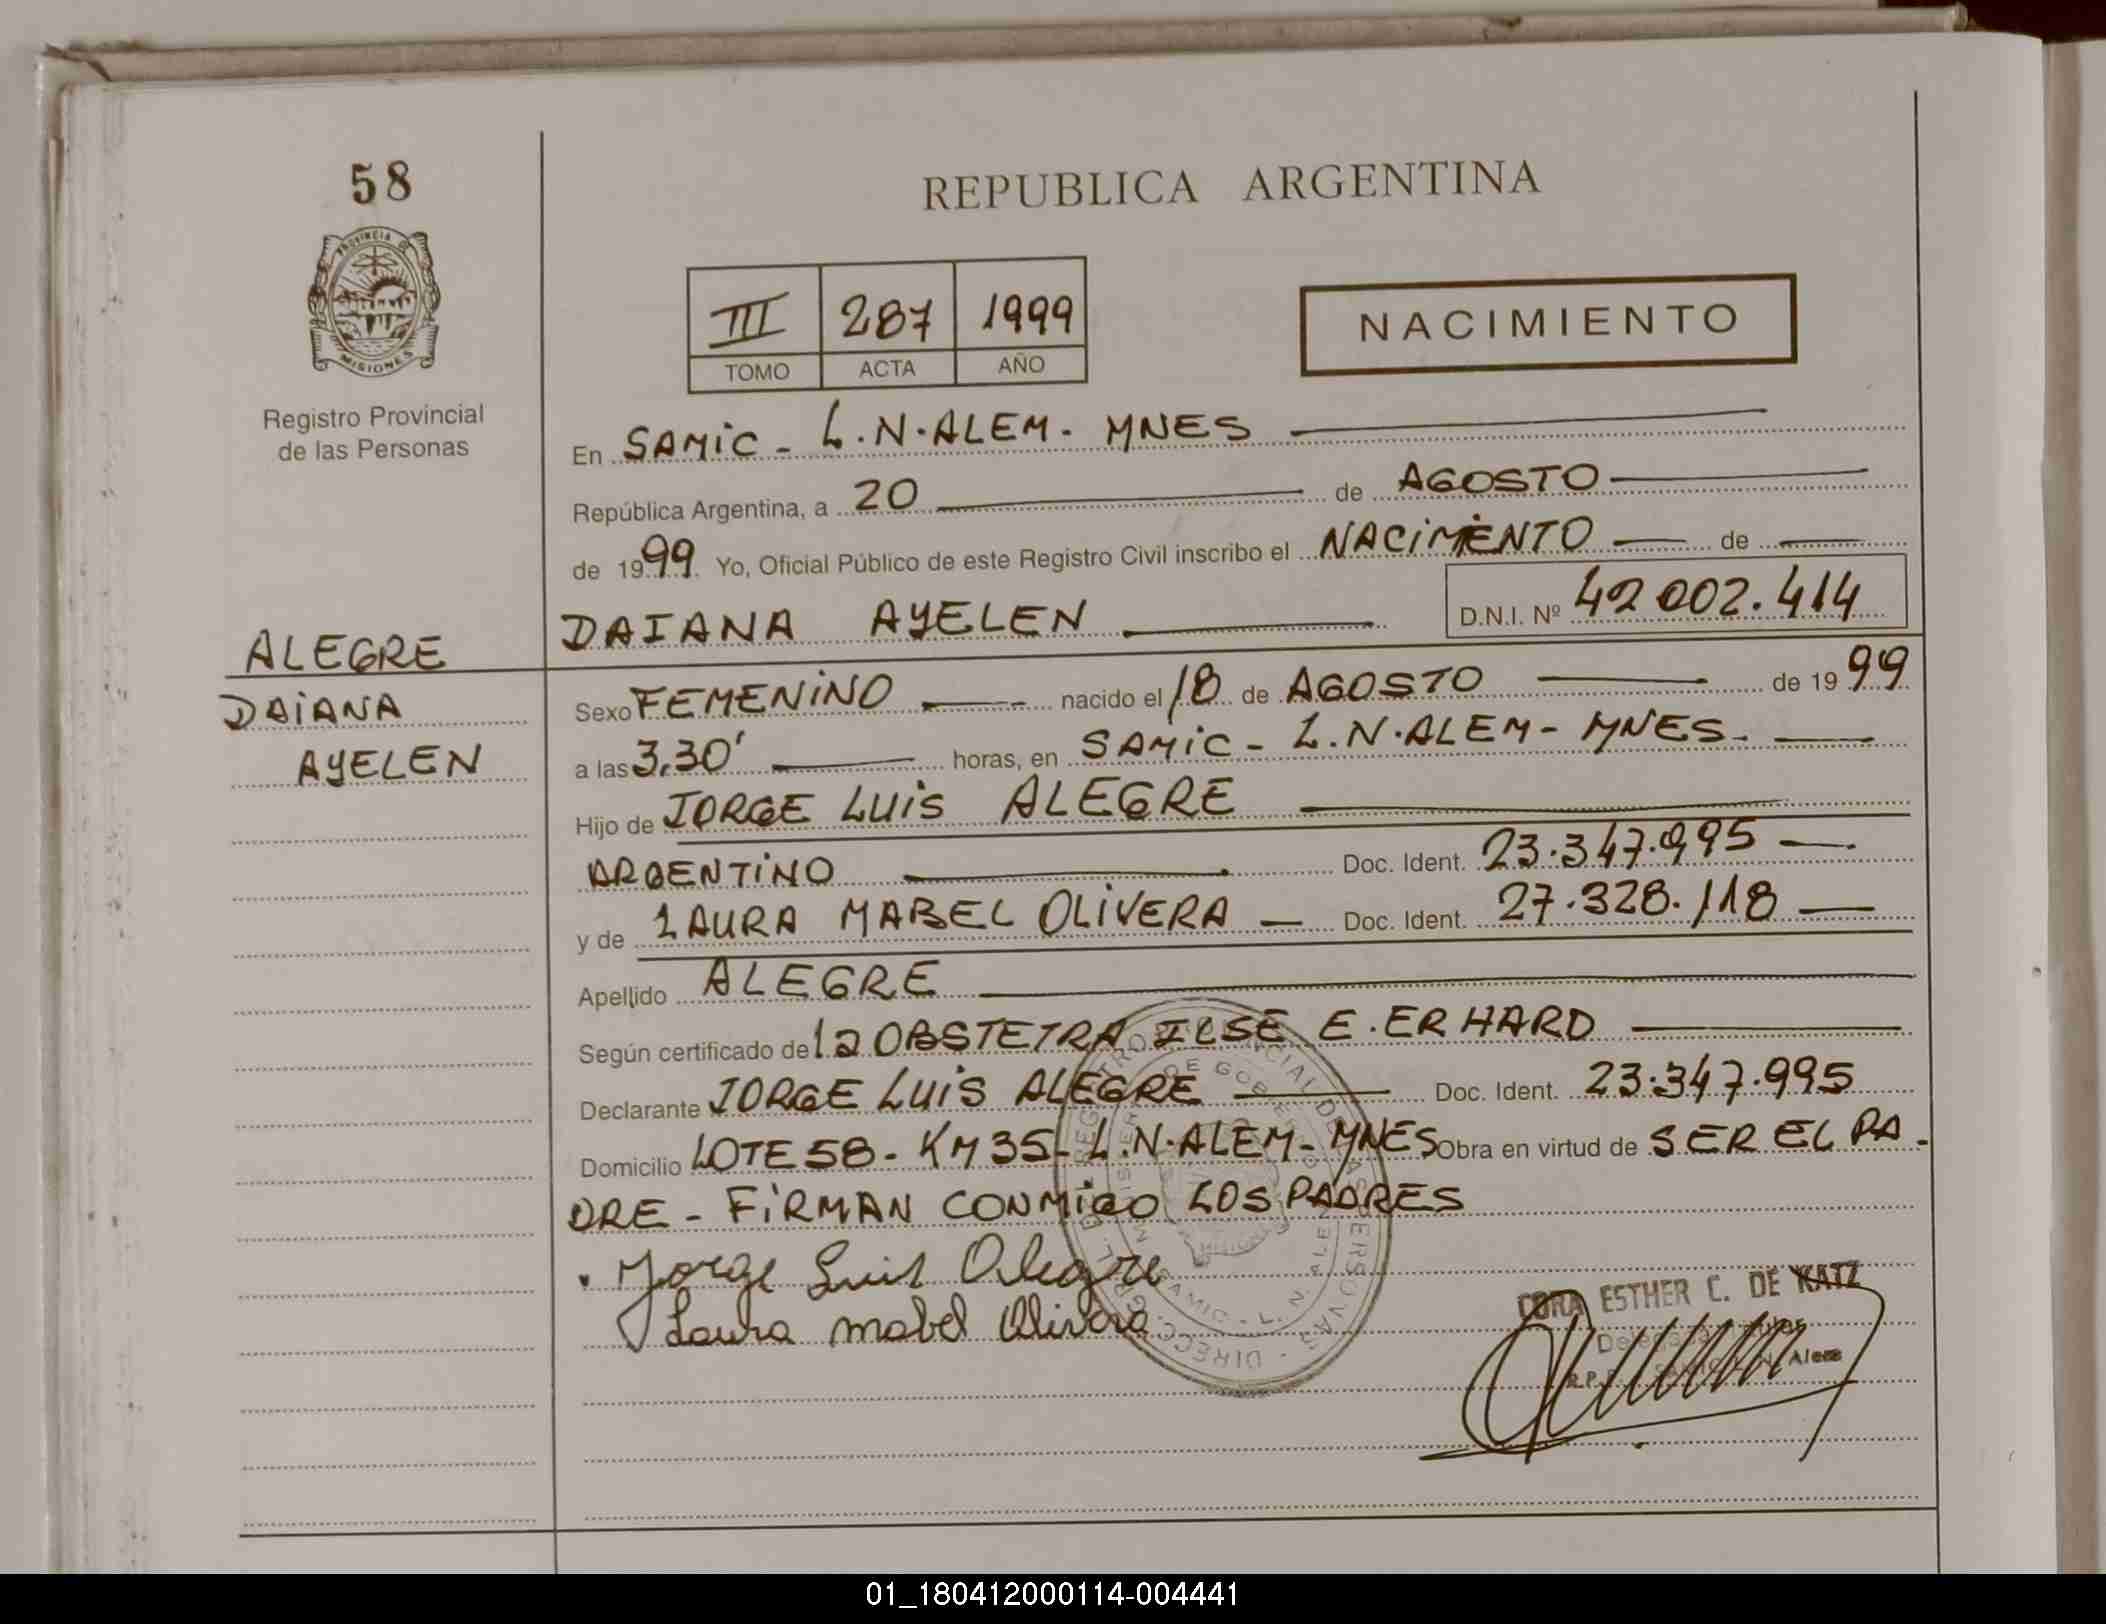 58
REPUBLICA ARGENTINA
PROVINCIA DE
MISIONES
Registro Provincial
de las Personas
III 287 1999
TOMO ACTA AÑO
NACIMIENTO
En SAMIC - L.N. ALEM - MNES
República Argentina, a 20 de AGOSTO
de 1999 Yo, Oficial Público de este Registro Civil inscribo el NACIMIENTO de
DAIANA AYELEN D.N.I. Nº 42002.414
ALEGRE
DAIANA
AYELEN
Sexo FEMENINO nacido el 18 de AGOSTO de 1999
a las 3,30' horas, en SAMIC - L.N. ALEM - MNES
Hijo de JORGE LUIS ALEGRE
ARGENTINO Doc. Ident. 23.347.995
y de LAURA MABEL OLIVERA Doc. Ident. 27.328.118
Apellido ALEGRE
Según certificado de la OBSTETRA ILSE E. ERHARD
Declarante JORGE LUIS ALEGRE Doc. Ident. 23.347.995
Domicilio LOTE 58 - KM 35 - L.N. ALEM - MNES Obra en virtud de SER EL PA-
DRE - FIRMAN CONMIGO LOS PADRES
Jorge Luis Alegre
Laura mabel Olivera
CORA ESTHER C. DE KATZ
Alem
01_180412000114-004441